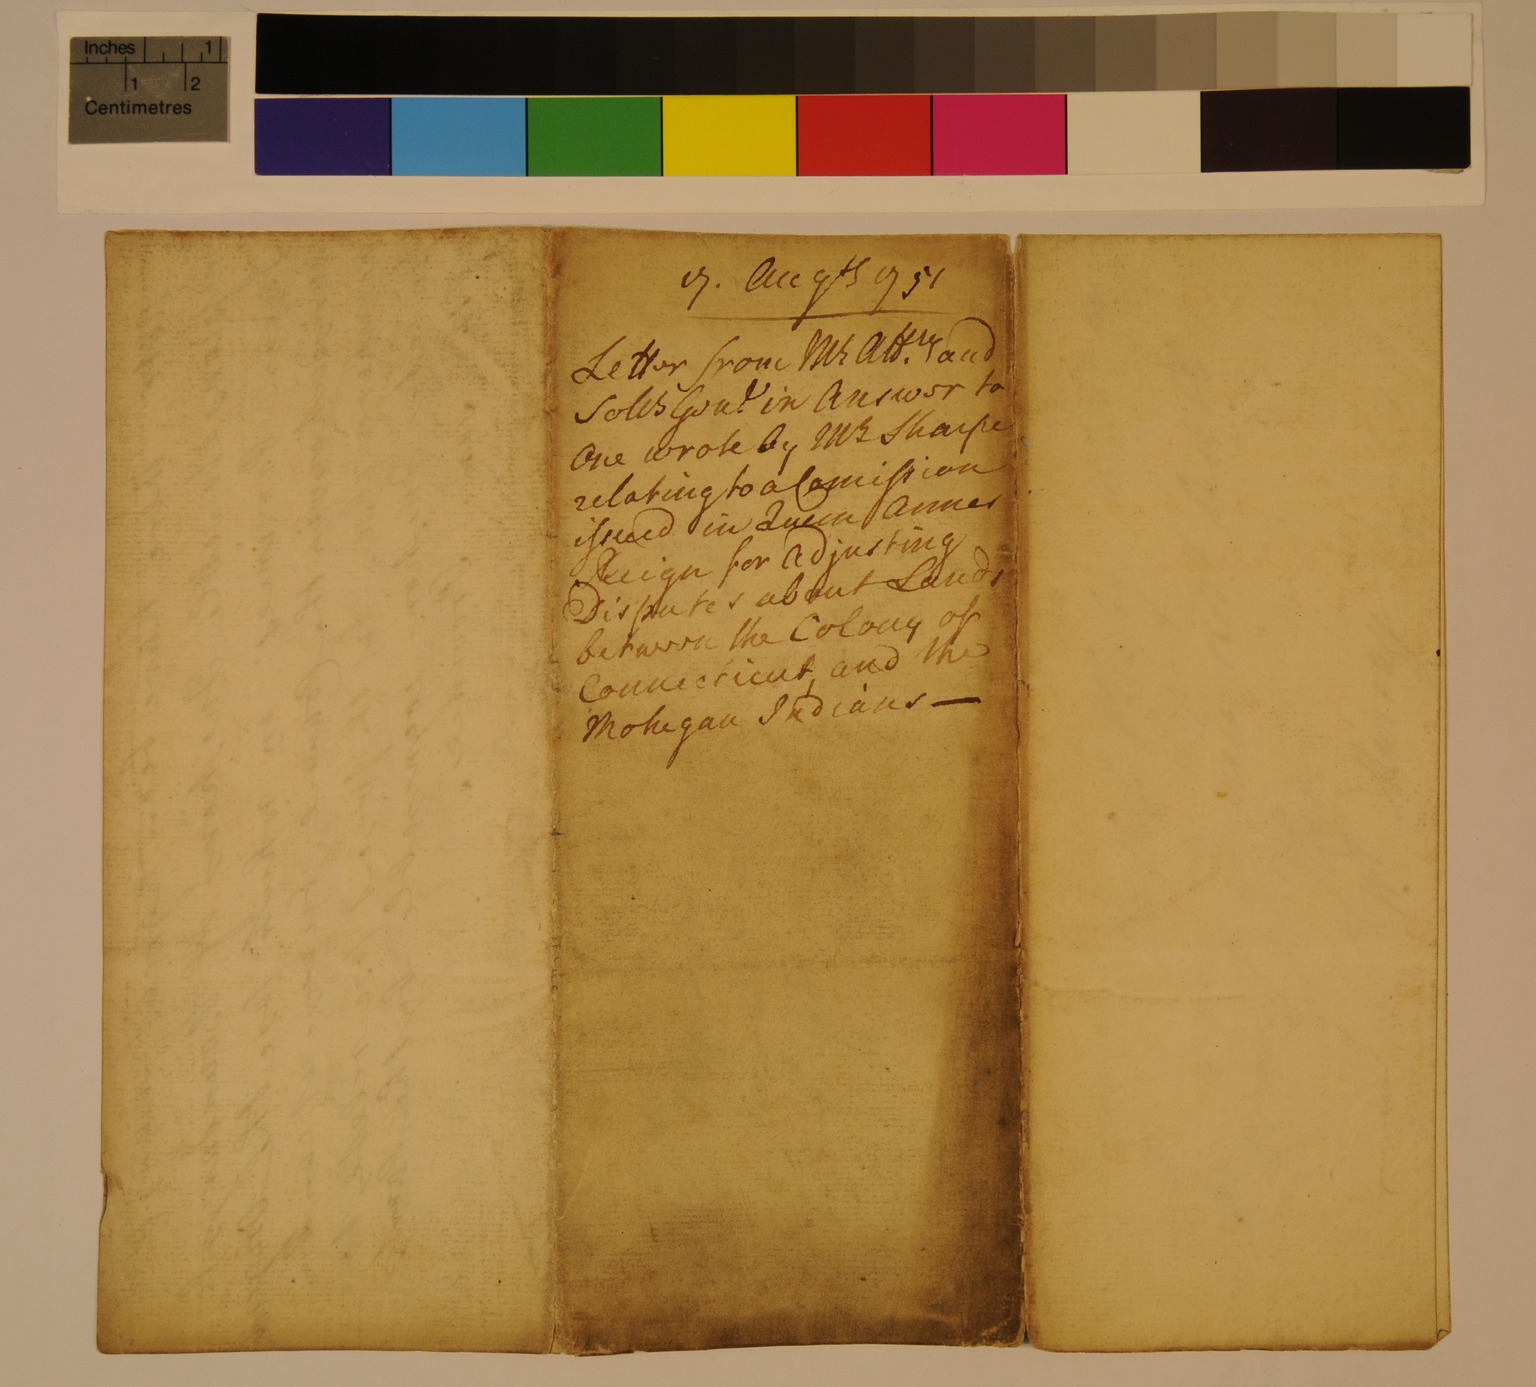 Inches 1
1 2
Centimetres
17. Augst 1751
Letter from Mr Attry and
Sollr Genl in Answer to
One wrote by Mr Sharpe
relating to a Comission
issued in Queen Annes
Reign for Adjusting
Disputes about Lands
between the Colony of
Connecticut, and the
Mohegan Indians —